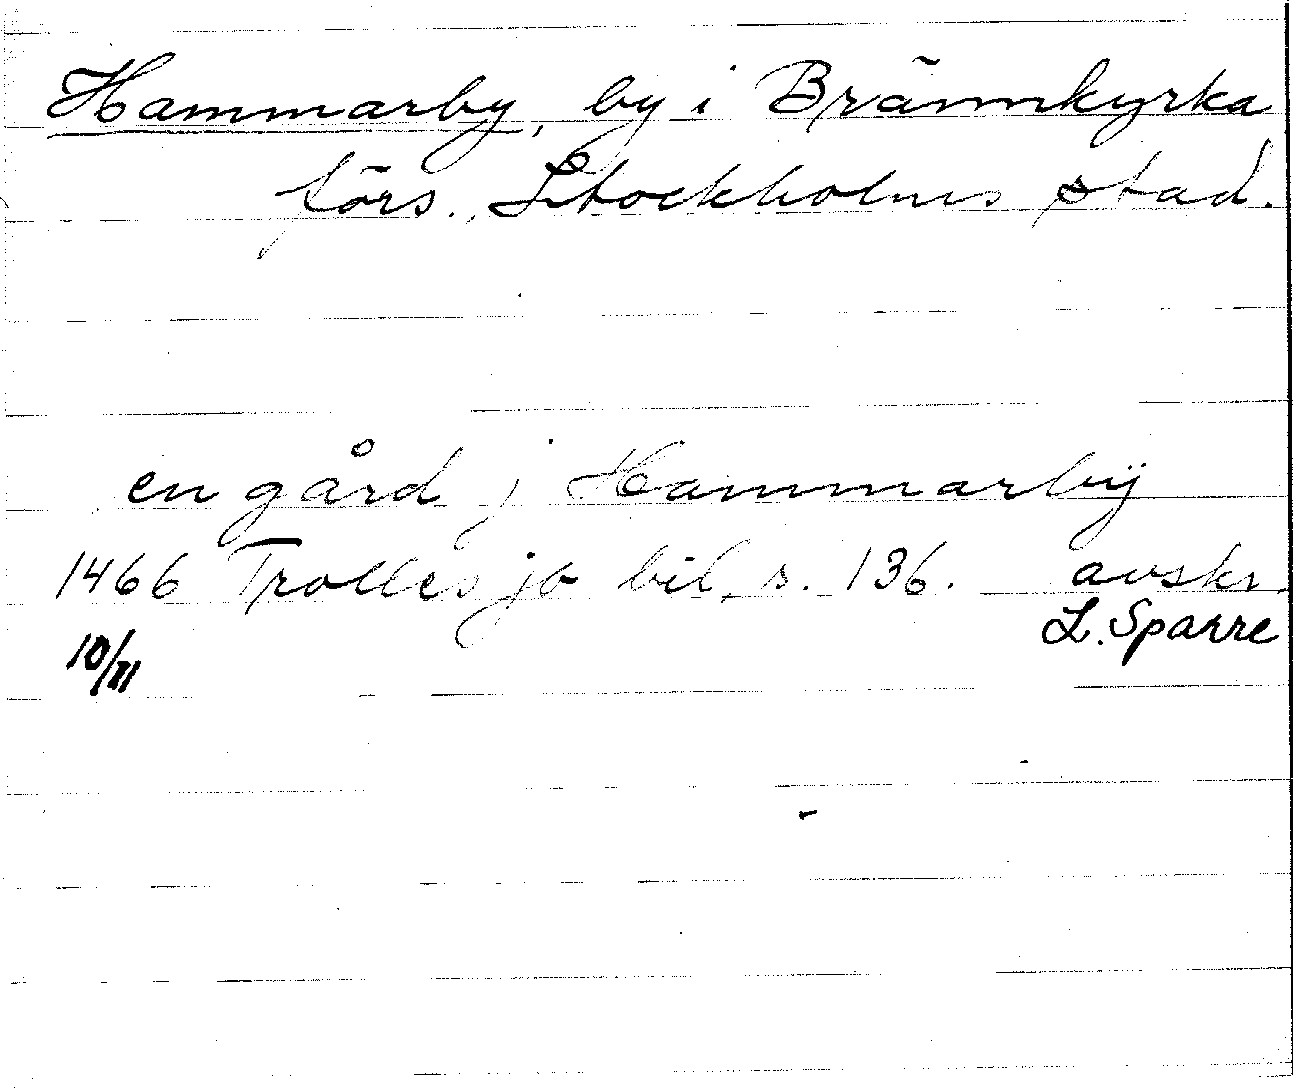 Hammarby, by i Brännkyrka
förs., Stockholms stad.
en gård j Hammarbÿ
1466 Trolles jb bil, s. 136. avskr.
10/11 L. Sparre